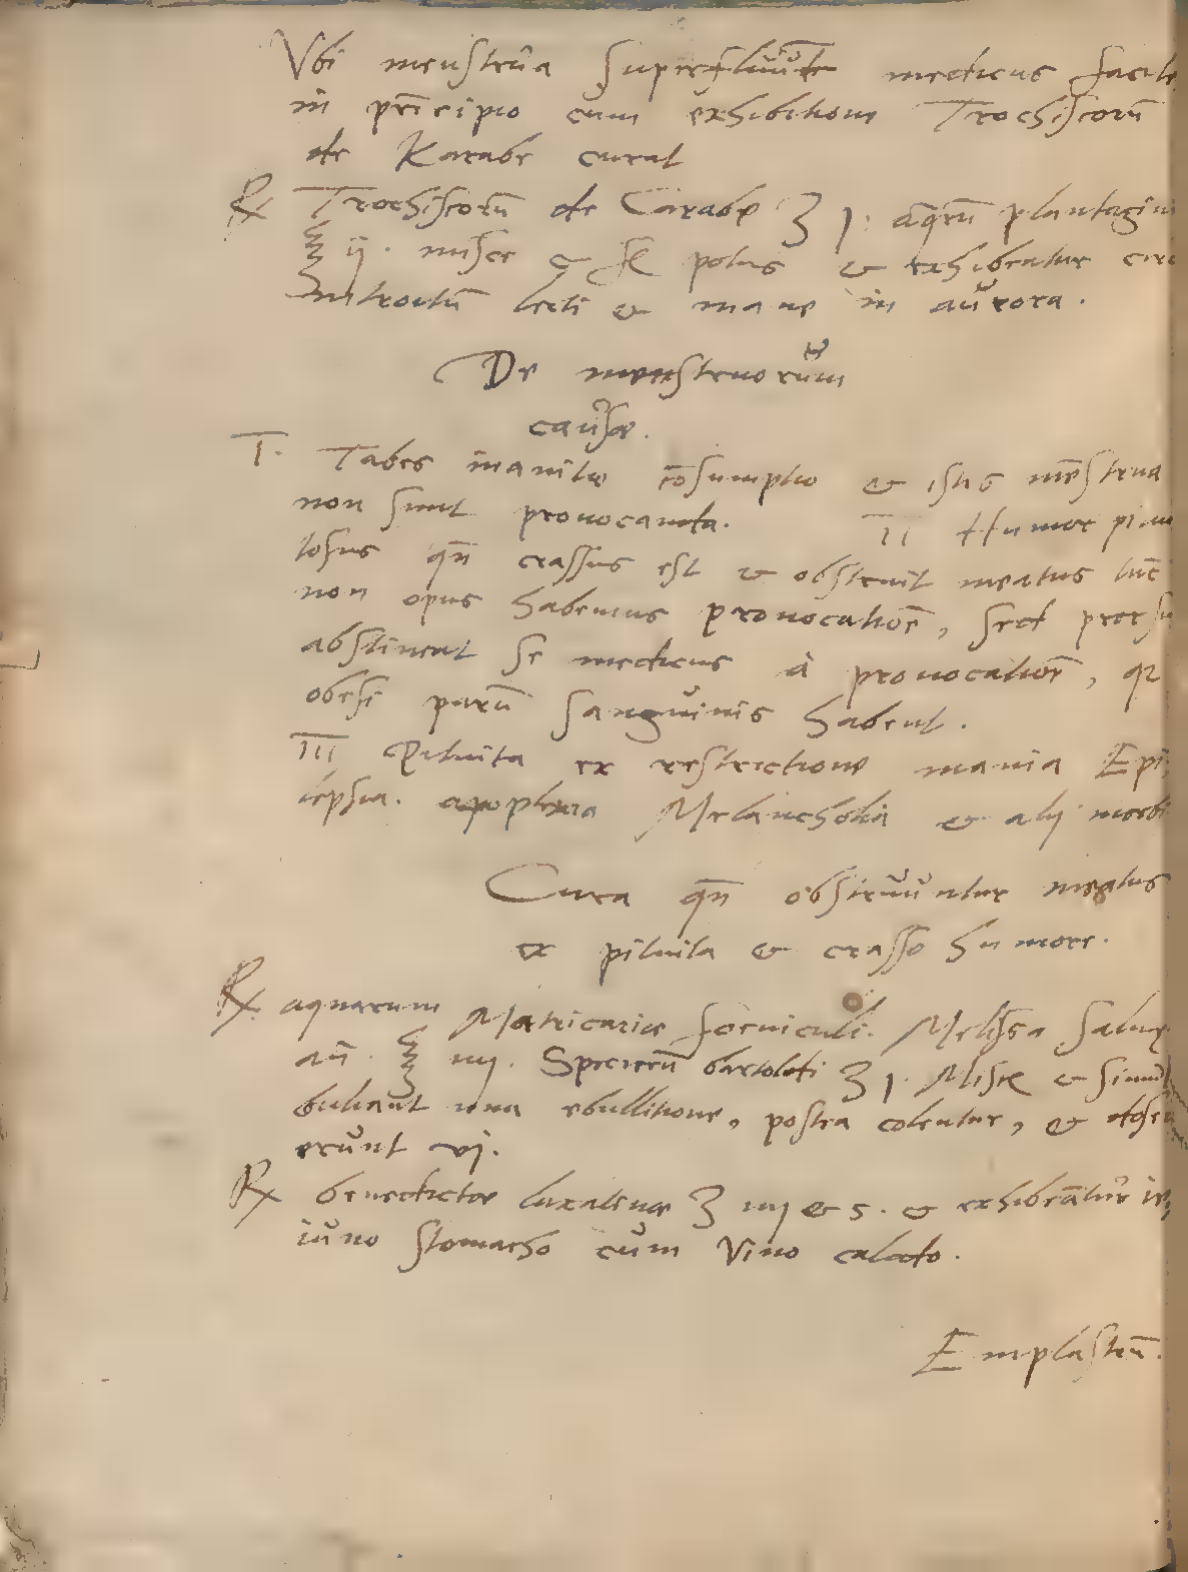 Vbi menstrūa superfluūt medicus facile
in prīcipio cum exhibitione Trochiscorū
de Karabe curat
℞ Trochiscorū de Carabe ʒ j. aqrū plantagini
℥ ij. misce & potus & exhibeatur circ
introitū lecti & mane in aurora.
De menstruorum
causæ.
I. Tabes inanitio cōsumptio & istis mēstrua
non sunt prouocanda. II Humor pitui
tosus qn̄ crassus est & obstruit meatus tūc
non opus habemus prouocationē, sed prorsu
abstineat se medicus à prouocationē, qꝛ
obesi parū sanguinis habent.
III Pituita ex restrictione mania Epi
lepsia. apoplexia Melancholia & alij morbi
Cura qn̄ obstruuntur meatus
ex pituita & crasso humore.
℞ aquarum Matricariæ foeniculi. Melissa saluiæ
an̄. ℥ iiij. Specierū ʒ j. Misce & simul
buliant una ebullitione, postea colentur, & doses
erunt vj.
℞ benedictæ laxatiuæ ʒ iiij & s. & exhibeātur ie,
iuno stomacho cum Vino calido.
Emplastrū.